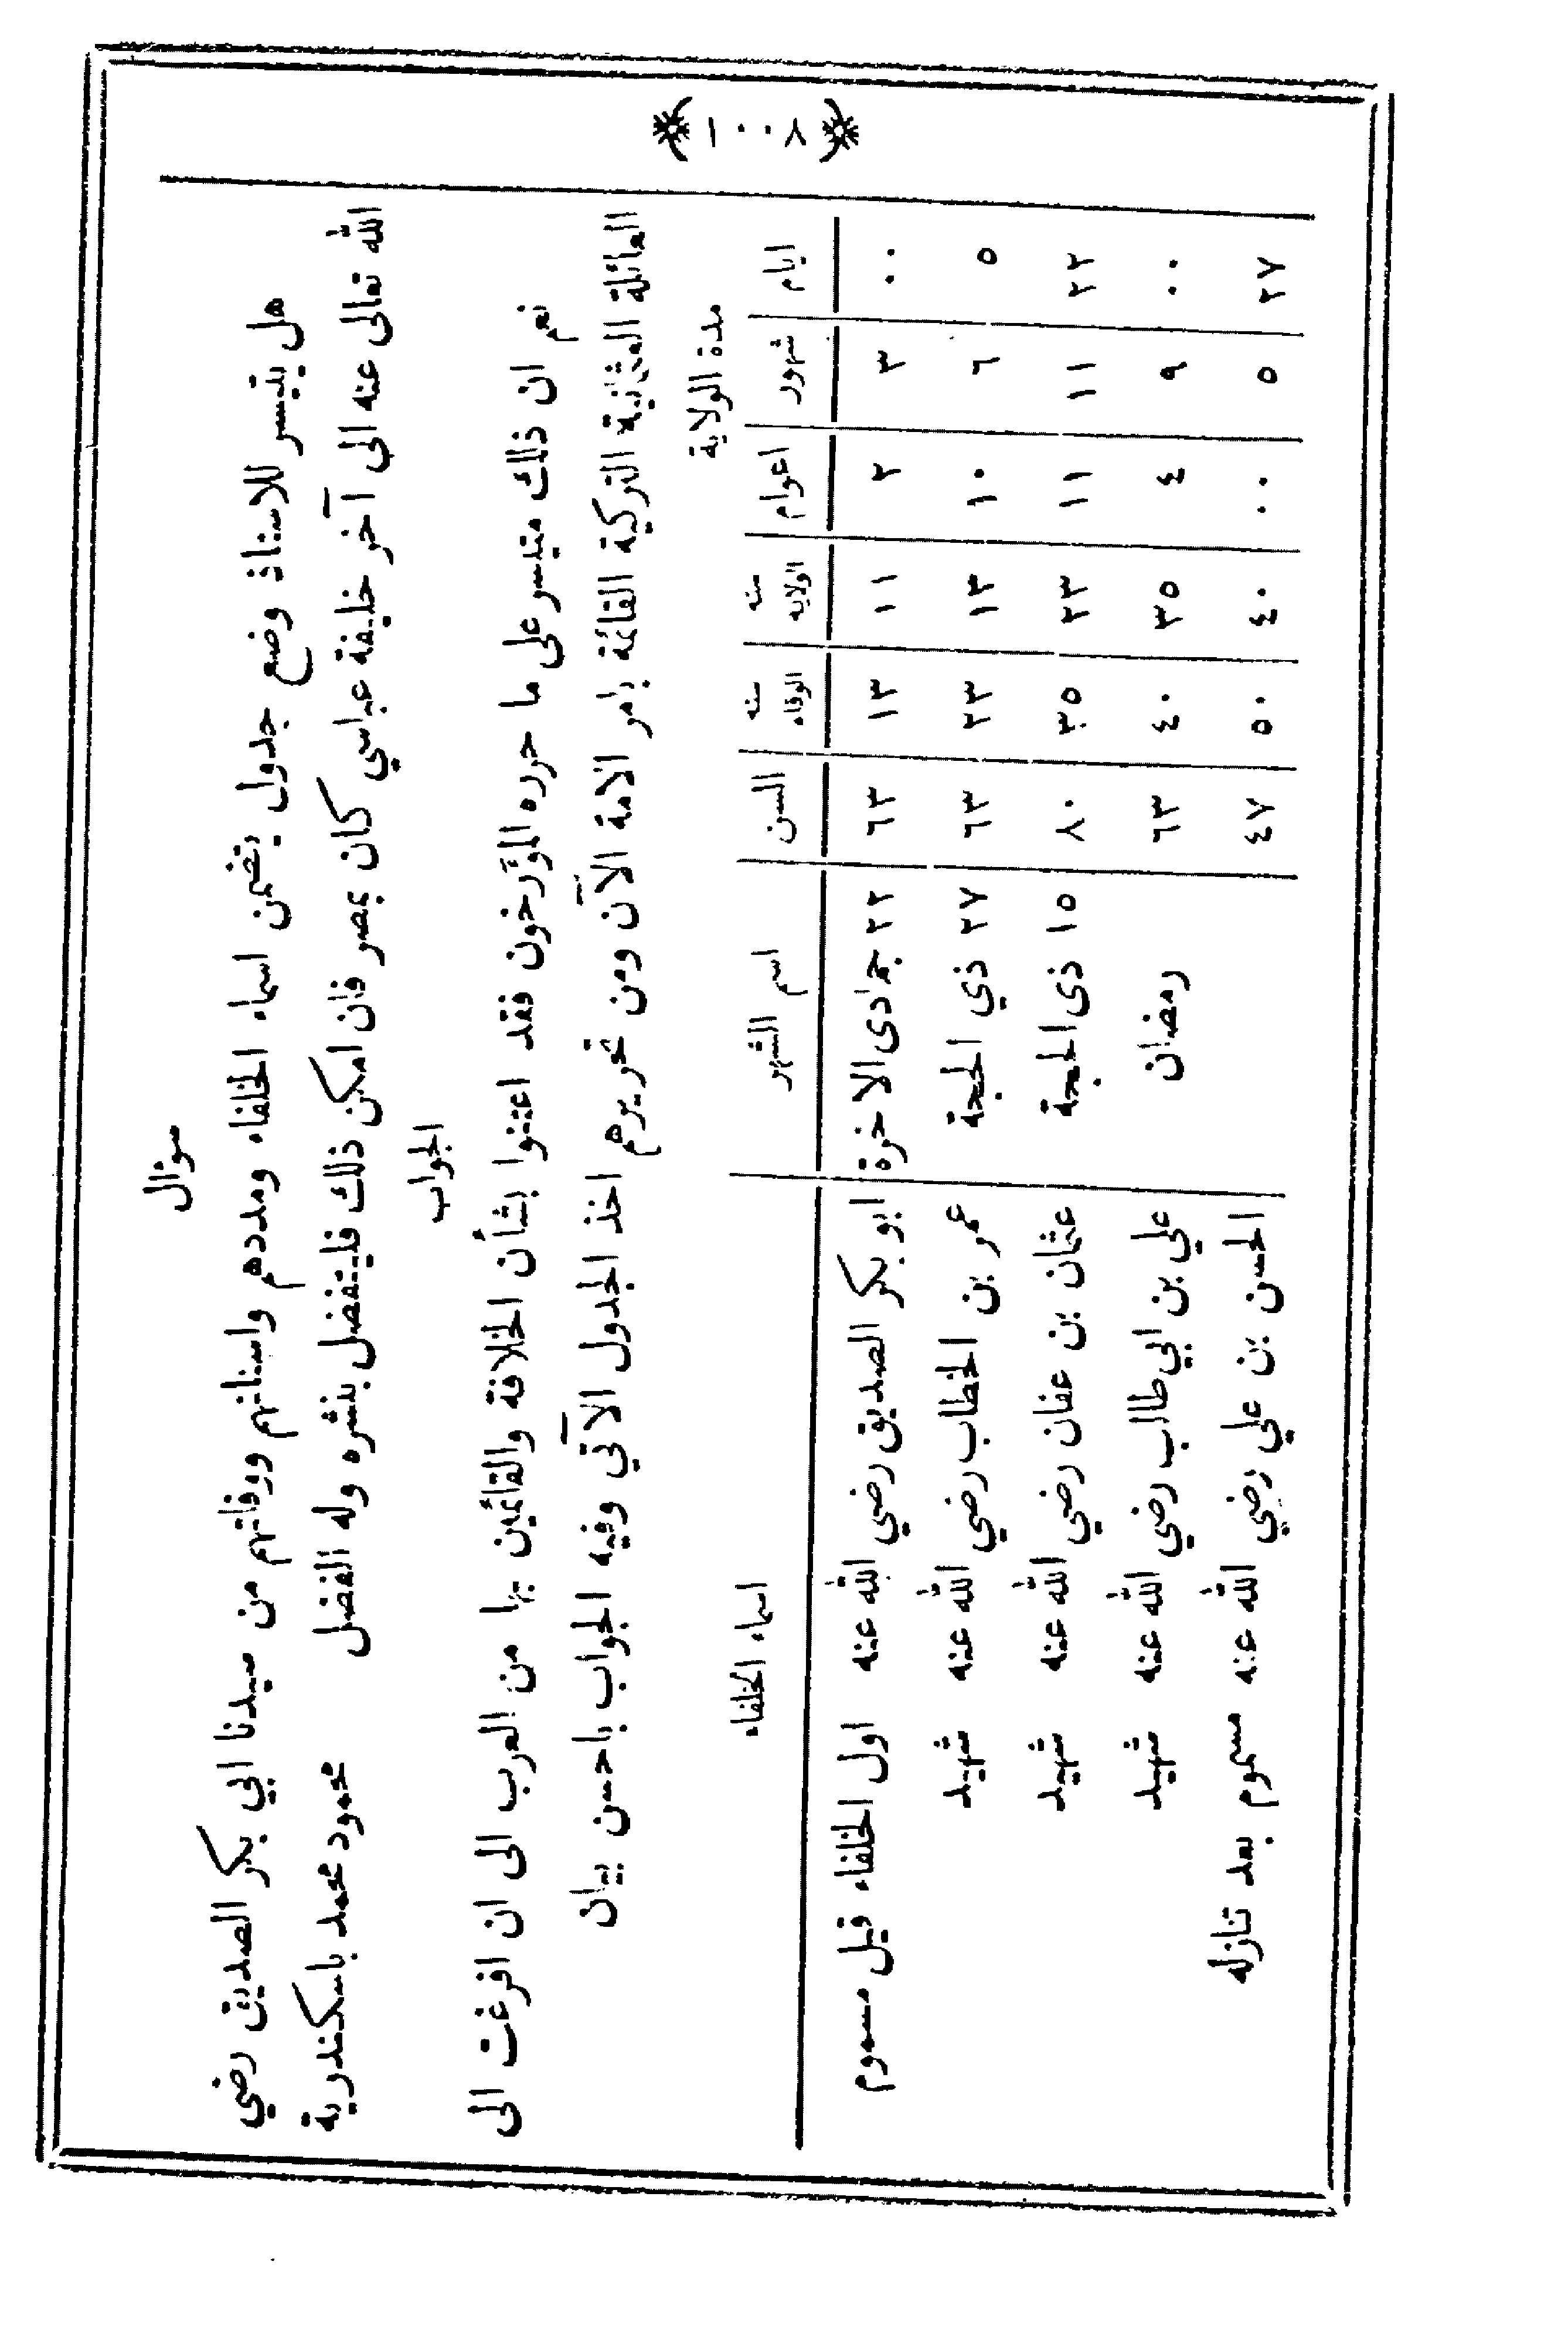 ﴿ ١٠٠٨ ﴾
سؤال
هل يتيسر للاستاذ وضع جدول يتضمن اسماء الخلفاء ومددهم واسنانهم ووفاتهم من سيدنا ابي بكر الصديق رضي
الله تعالى عنه الى آخر خليفة عباسي كان بمصر فان امكن ذلك فليتفضل بنشره وله الفضل محمود محمد باسكندرية
الجواب
نعم ان ذلك متيسر على ما حرره المؤرخون فقد اعتنوا بشأن الخلافة والقائمين بها من العرب الى ان افرغت الى
العائلة العثمانية التركية القائمة بامر الامة الآن ومن تحريرهم اخذ الجدول الآتي وفيه الجواب باحسن بيان
مدة الولاية
ايام شهور اعوام سنه الولايه سنه الوفاه السن اسم الشهر اسماء الخلفاء
٠٠ ٣ ٢ ١١ ١٣ ٦٣ ٢٢ جمادى الاخرة ابو بكر الصديق رضي الله عنه اول الخلفاء قيل مسموم
٥ ٦ ١٠ ١٣ ٢٣ ٦٣ ٢٧ ذي الحجة عمر بن الخطاب رضي الله عنه شهيد
٢٢ ١١ ١١ ٢٣ ٣٥ ٨٠ ١٥ ذى الحجة عثمان بن عفان رضي الله عنه شهيد
٠٠ ٩ ٤ ٣٥ ٤٠ ٦٣ رمضان علي بن ابي طالب رضي الله عنه شهيد
٢٧ ٥ ٠٠ ٤٠ ٥٠ ٤٧ الحسن بن علي رضي الله عنه مسموم بعد تنازله